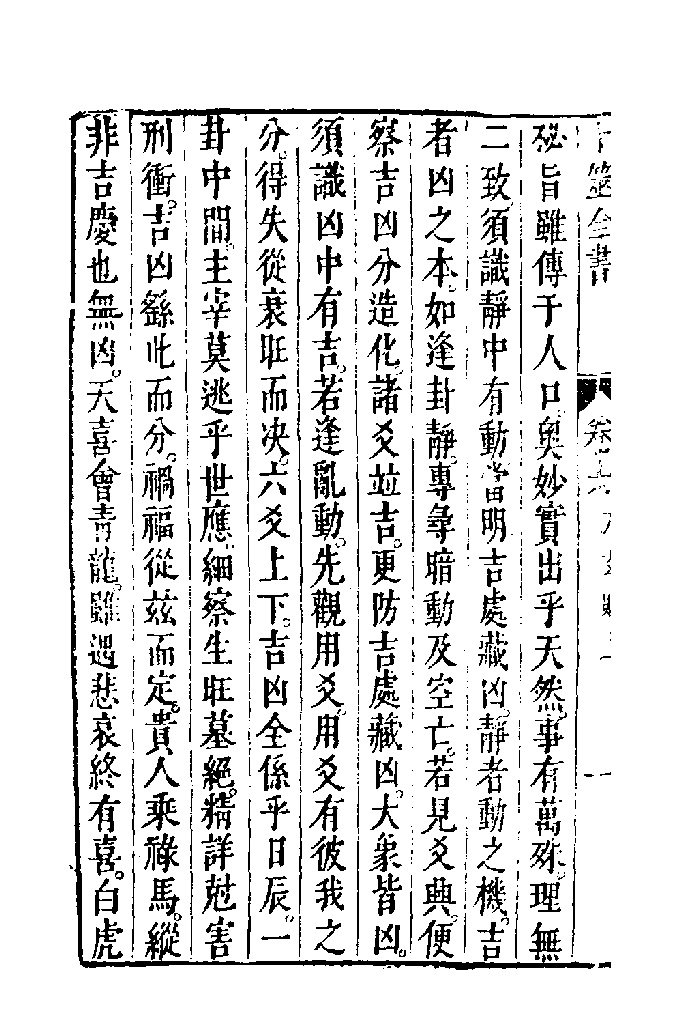 卜筮全書
秘旨雖傳于人口。奧妙實出乎天然。事有萬殊。理無
二致須識靜中有動當明吉處藏凶。靜者動之機。吉
者凶之本。如逢卦靜。專尋暗動及空亡。若見爻興。便
察吉凶分造化。諸爻並吉。更防吉處藏凶。大象皆凶。
須識凶中有吉。若逢亂動。先觀用爻。用爻有彼我之
分。得失從衰旺而决。六爻上下。吉凶全係乎日辰。一
卦中間。主宰莫逃乎世應。細察生旺墓絕。精詳尅害
刑衝。吉凶繇此而分。禍福從玆而定。貴人乘祿馬。縱
非吉慶也無凶。天喜會青龍。雖遇悲哀終有喜。白虎